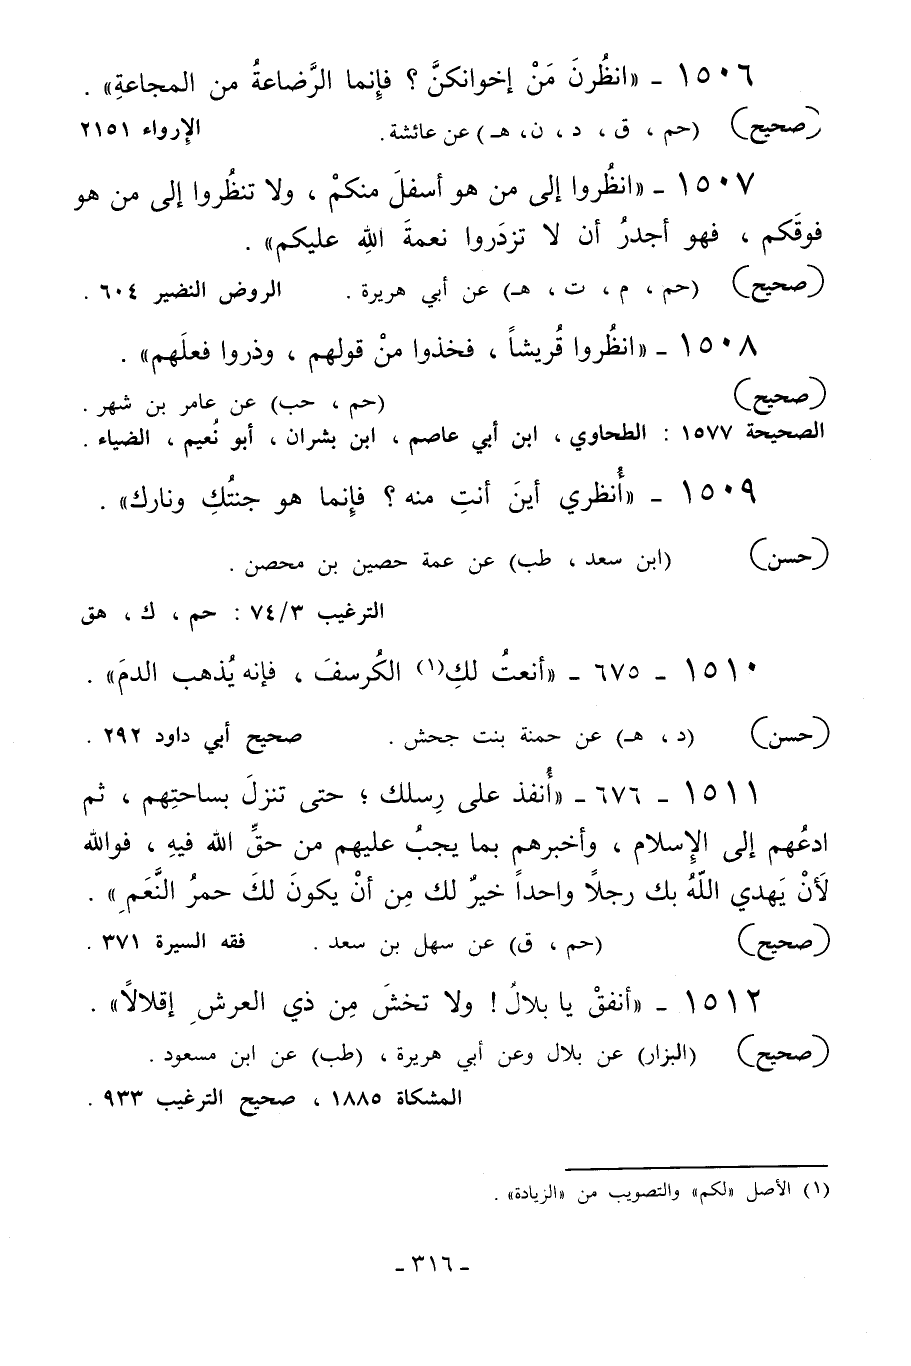 ١٥٠٦ - «انظُرنَ مَنْ إخوانكنَّ ؟ فإِنما الرَّضاعةُ من المجاعةِ» .
(صحيح) (حم ، ق ، د ، ن، هـ) عن عائشة. الإرواء ٢١٥١
١٥٠٧ - «انظُروا إلى من هو أسفلَ منكمْ ، ولا تنظُروا إلى من هو
فوقَكم ، فهو أجدرُ أن لا تزدَروا نعمةَ اللهِ عليكم» .
(صحيح) (حم ، م ، ت ، هـ) عن أبي هريرة . الروض النضير ٦٠٤ .
١٥٠٨ - «انظُروا قُريشاً ، فخذوا منْ قولهم ، وذروا فعلَهم» .
(صحيح) (حم ، حب) عن عامر بن شهر .
الصحيحة ١٥٧٧ : الطحاوي ، ابن أبي عاصم ، ابن بشران ، أبو نُعيم ، الضياء .
١٥٠٩ - «أُنظري أينَ أنتِ منه ؟ فإنما هو جنتُكِ ونارك» .
(حسن) (ابن سعد ، طب) عن عمة حصين بن محصن .
الترغيب ٧٤/٣ : حم ، ك ، هق
١٥١٠ - ٦٧٥ - «أنعتُ لكِ(١) الكُرسفَ ، فإنه يُذهب الدمَ» .
(حسن) (د ، هـ) عن حمنة بنت جحش . صحيح أبي داود ٢٩٢ .
١٥١١ - ٦٧٦ - «أُنفذ على رِسلك ؛ حتى تنزلَ بساحتِهم ، ثم
ادعُهم إلى الإِسلام ، وأخبرهم بما يجبُ عليهم من حقِّ الله فيهِ ، فوالله
لَأنْ يَهدي اللّهُ بك رجلاً واحداً خيرٌ لك مِن أنْ يكونَ لكَ حمرُ النَّعَمِ» .
(صحيح) (حم ، ق) عن سهل بن سعد . فقه السيرة ٣٧١ .
١٥١٢ - «أنفقْ يا بلالُ! ولا تخشَ مِن ذي العرشِ إقلالاً» .
(صحيح) (البزار) عن بلال وعن أبي هريرة ، (طب) عن ابن مسعود .
المشكاة ١٨٨٥ ، صحيح الترغيب ٩٣٣ .
(١) الأصل «لكم» والتصويب من «الزيادة» .
- ٣١٦ -